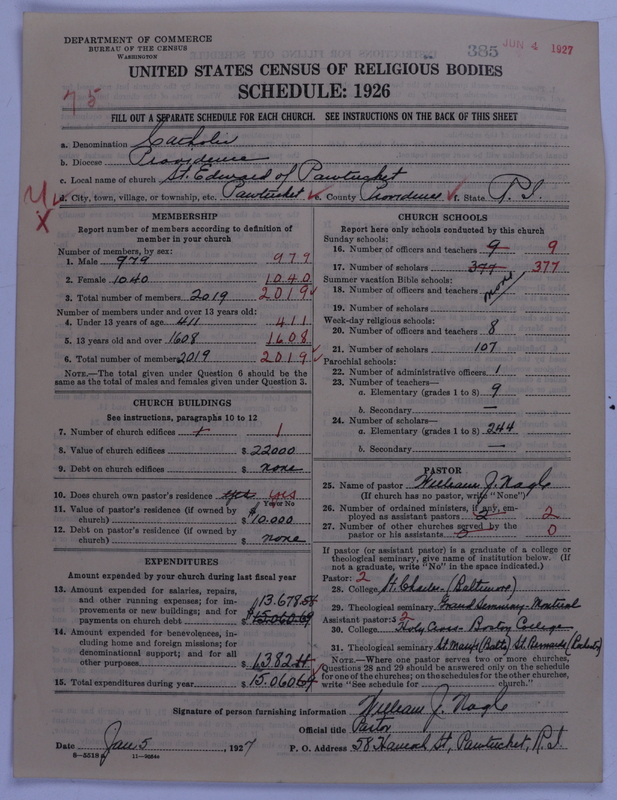 DEPARTMENT OF COMMERCE
BUREAU OF THE CENSUS
WASHINGTON
385 JUN 4 1927
UNITED STATES CENSUS OF RELIGIOUS BODIES
SCHEDULE: 1926
7 5
FILL OUT A SEPARATE SCHEDULE FOR EACH CHURCH. SEE INSTRUCTIONS ON THE BACK OF THIS SHEET
a. Denomination Catholic
b. Diocese Providence
c. Local name of church St. Edward of Pawtucket
d. City, town, village, or township, etc. Pawtucket e. County Providence f. State R.I.
MEMBERSHIP
Report number of members according to definition of
member in your church
Number of members, by sex:
1. Male 979 979
2. Female 1040 1040
3. Total number of members 2019 2019
Number of members under and over 13 years old:
4. Under 13 years of age 411 411
5. 13 years old and over 1608 1608
6. Total number of members 2019 2019
NOTE.—The total given under Question 6 should be the
same as the total of males and females given under Question 3.
CHURCH BUILDINGS
See instructions, paragraphs 10 to 12
7. Number of church edifices 1
8. Value of church edifices $ 22000
9. Debt on church edifices $ none
10. Does church own pastor's residence yes yes
Yes or No
11. Value of pastor's residence (if owned by
church) $ 10.000
12. Debt on pastor's residence (if owned by
church) $ none
EXPENDITURES
Amount expended by your church during last fiscal year
13. Amount expended for salaries, repairs,
and other running expenses; for im-
provements or new buildings; and for
payments on church debt $ 13.678.54 15.060.64
14. Amount expended for benevolences, in-
cluding home and foreign missions; for
denominational support; and for all
other purposes $
15. Total expenditures during year $ 15.060.64
CHURCH SCHOOLS
Report here only schools conducted by this church
Sunday schools:
16. Number of officers and teachers 9 9
17. Number of scholars 377 377
Summer vacation Bible schools:
18. Number of officers and teachers none
19. Number of scholars
Week-day religious schools:
20. Number of officers and teachers 8
21. Number of scholars 107
Parochial schools:
22. Number of administrative officers 1
23. Number of teachers—
a. Elementary (grades 1 to 8) 9
b. Secondary —
24. Number of scholars—
a. Elementary (grades 1 to 8) 244
b. Secondary —
PASTOR
25. Name of pastor William J. Nagle
(If church has no pastor, write "None")
26. Number of ordained ministers, if any, em-
ployed as assistant pastors 2 2
27. Number of other churches served by the
pastor or his assistants 0 0
If pastor (or assistant pastor) is a graduate of a college or
theological seminary, give name of institution below. (If
not a graduate, write "No" in the space indicated.)
Pastor: 2
28. College St Charles (Baltimore)
29. Theological seminary Grand Seminary Montreal
Assistant pastor: 2
30. College Holy Cross Boston College
31. Theological seminary St. Mary's (Balto) St. Bernards
NOTE.—Where one pastor serves two or more churches,
Questions 28 and 29 should be answered only on the schedule
for one of the churches; on the schedules for the other churches,
write "See schedule for church."
Signature of person furnishing information William J. Nagle
Official title Pastor
Date Jan 5, 1927 P. O. Address 58 Hancock St, Pawtucket, R.I.
8—5518 11—9084